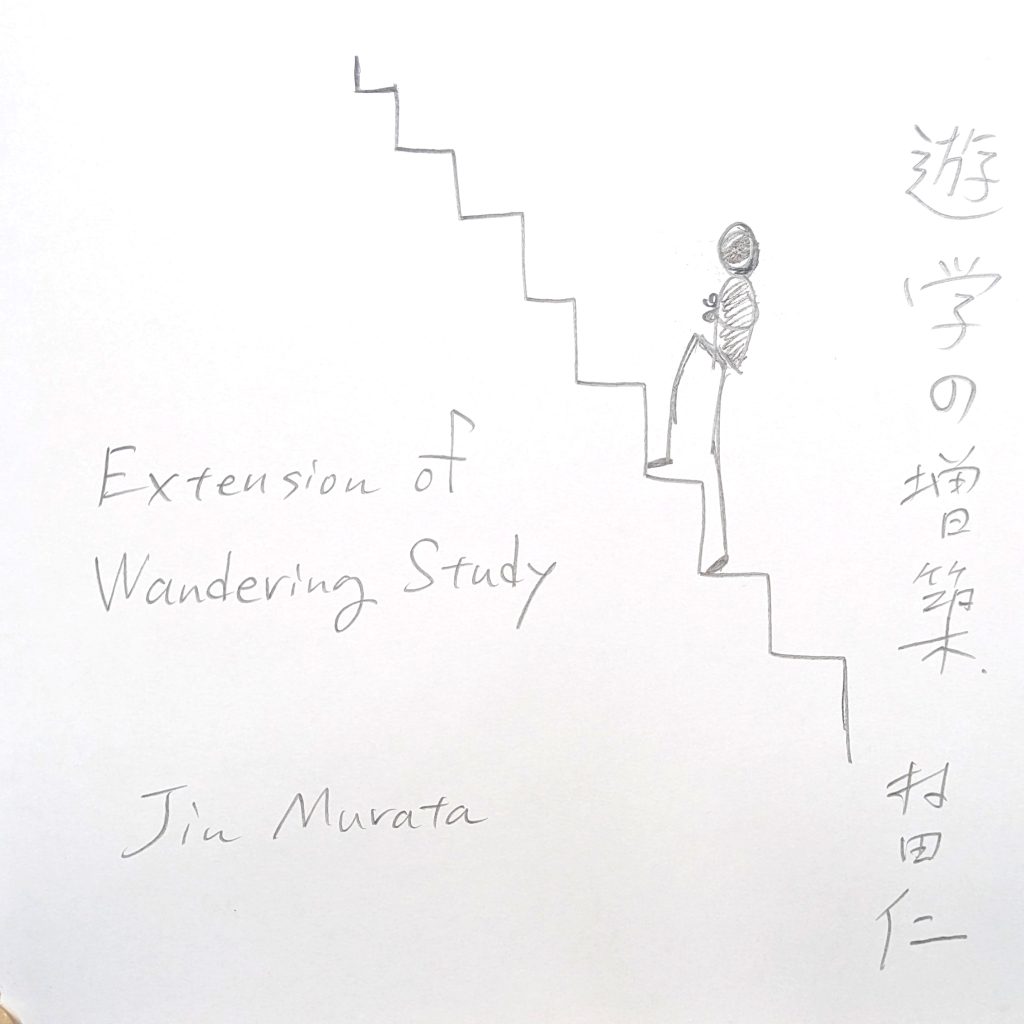 遊学の増築.
村田仁
Extension of
Wandering Study
Jin Murata